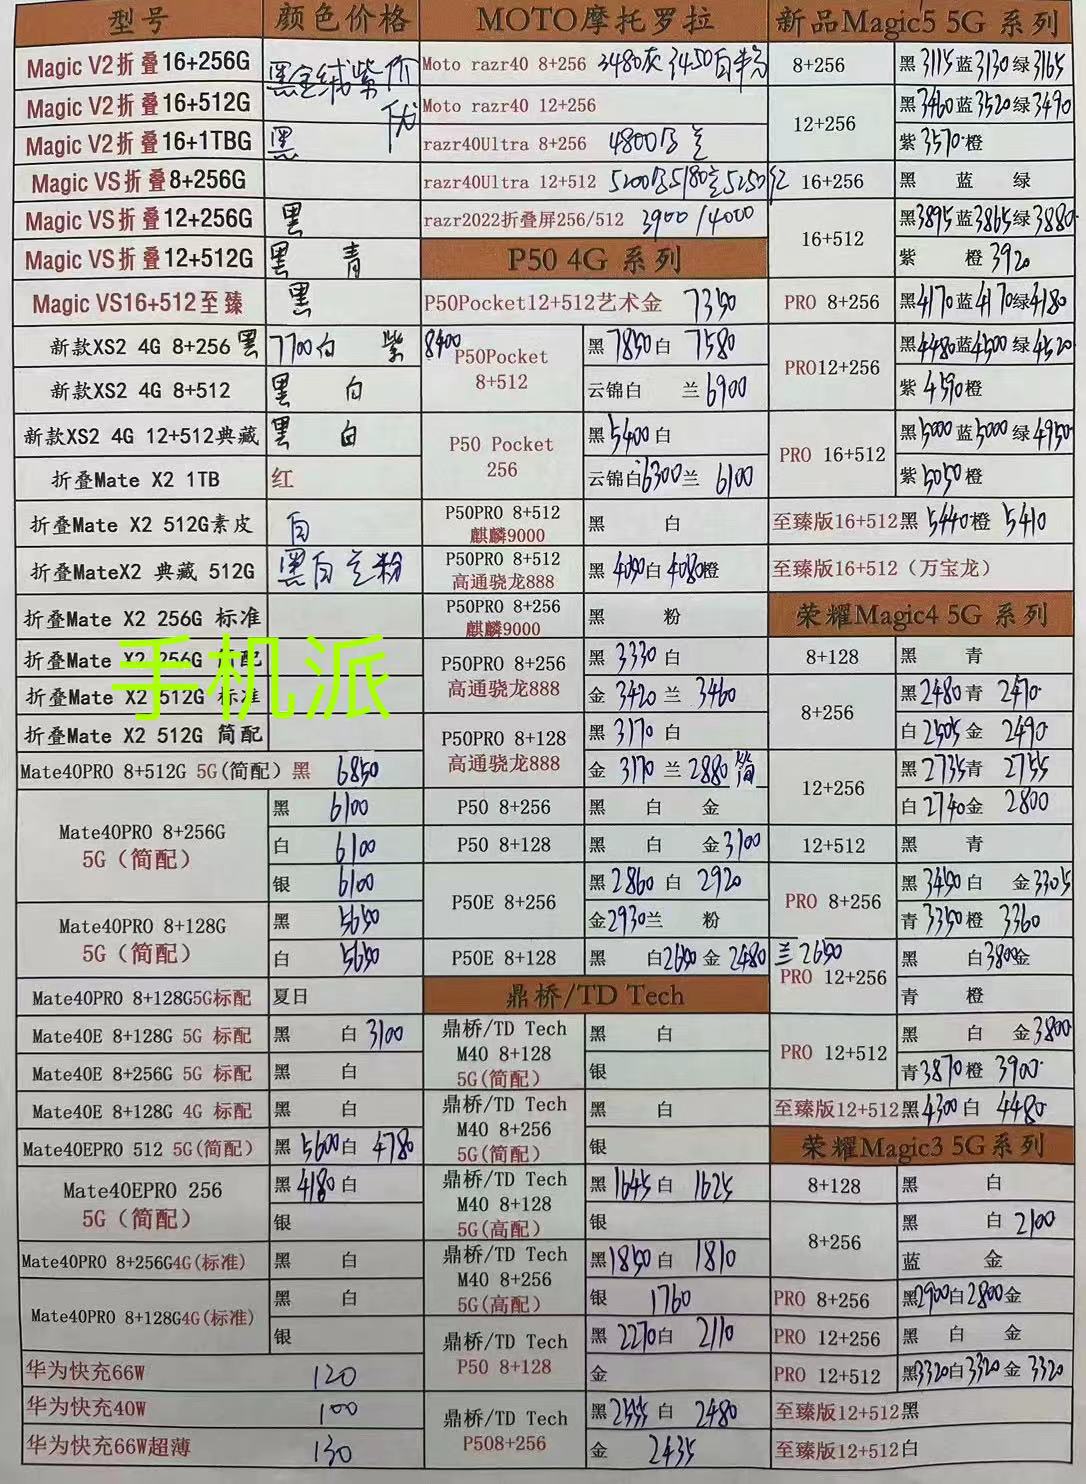 型号 颜色价格 MOTO摩托罗拉 新品Magic5 5G 系列
Magic V2折叠16+256G 黑金绒紫价 Moto razr40 8+256 3480灰 3450白 8+256 黑3115蓝3130绿3165
Magic V2折叠16+512G 优 Moto razr40 12+256 12+256 黑3460蓝3520绿3490
Magic V2折叠16+1TBG 黑 razr40Ultra 8+256 4800 紫3570橙
Magic VS折叠8+256G razr40Ultra 12+512 5200 5180 5250红 16+256 黑 蓝 绿
Magic VS折叠12+256G 黑 razr2022折叠屏256/512 3900/4000 16+512 黑3895蓝3865绿3880
Magic VS折叠12+512G 黑 青 P50 4G 系列 紫 橙3920
Magic VS16+512至臻 黑 P50Pocket12+512艺术金 7350 PRO 8+256 黑4170蓝4170绿4180
新款XS2 4G 8+256 黑 7700白 紫 8400 P50Pocket 8+512 黑7850白 7580 PRO12+256 黑4480蓝4500绿4520
新款XS2 4G 8+512 黑 白 云锦白 兰6900 紫4590橙
新款XS2 4G 12+512典藏 黑 白 P50 Pocket 256 黑5400白 PRO 16+512 黑5000蓝5000绿4950
折叠Mate X2 1TB 红 云锦白6300兰 6100 紫5050橙
折叠Mate X2 512G素皮 白 P50PRO 8+512 麒麟9000 黑 白 至臻版16+512黑 5440橙 5410
折叠MateX2 典藏 512G 黑白 粉 P50PRO 8+512 高通骁龙888 黑 4050白4080橙 至臻版16+512(万宝龙)
折叠Mate X2 256G 标准 P50PRO 8+256 麒麟9000 黑 粉 荣耀Magic4 5G 系列
折叠Mate X2 256G 简配 P50PRO 8+256 高通骁龙888 黑 3330白 8+128 黑 青
手机派
折叠Mate X2 512G 标准 金 3420兰 3460 8+256 黑2480青 2470
折叠Mate X2 512G 简配 P50PRO 8+128 高通骁龙888 黑 3170白 白2505金 2490
Mate40PRO 8+512G 5G(简配)黑 6850 金 3170兰2880简 12+256 黑2735青 2755
Mate40PRO 8+256G 5G(简配) 黑 6100 P50 8+256 黑 白 金 白2740金 2800
白 6100 P50 8+128 黑 白 金3100 12+512 黑 青
银 6100 P50E 8+256 黑2860白 2920 PRO 8+256 黑3450白 金3305
Mate40PRO 8+128G 5G(简配) 黑 5650 金2930兰 粉 青3350橙 3360
白 5650 P50E 8+128 黑 白2650金2480兰2650 PRO 12+256 黑 白3800金
Mate40PRO 8+128G5G标配 夏日 鼎桥/TD Tech 青 橙
Mate40E 8+128G 5G 标配 黑 白3100 鼎桥/TD Tech M40 8+128 5G(简配) 黑 白 PRO 12+512 黑 白 金3800
Mate40E 8+256G 5G 标配 黑 白 银 青3870橙 3900
Mate40E 8+128G 4G 标配 黑 白 鼎桥/TD Tech M40 8+256 5G(简配) 黑 白 至臻版12+512黑4300白 4480
Mate40EPRO 512 5G(简配) 黑5600白 4780 银 荣耀Magic3 5G系列
Mate40EPRO 256 5G(简配) 黑4180白 鼎桥/TD Tech M40 8+128 5G(高配) 黑1645白 1625 8+128 黑 白
银 银 8+256 黑 白2100
Mate40PRO 8+256G4G(标准) 黑 白 鼎桥/TD Tech M40 8+256 5G(高配) 黑1850白 1810 蓝 金
Mate40PRO 8+128G4G(标准) 黑 白 银 1760 PRO 8+256 黑2900白2800金
银 鼎桥/TD Tech P50 8+128 黑 2270白 2110 PRO 12+256 黑 白 金
华为快充66W 120 金 PRO 12+512 黑3320白3320金 3320
华为快充40W 100 鼎桥/TD Tech P508+256 黑2555白 2480 至臻版12+512黑
华为快充66W超薄 130 金 2435 至臻版12+512白